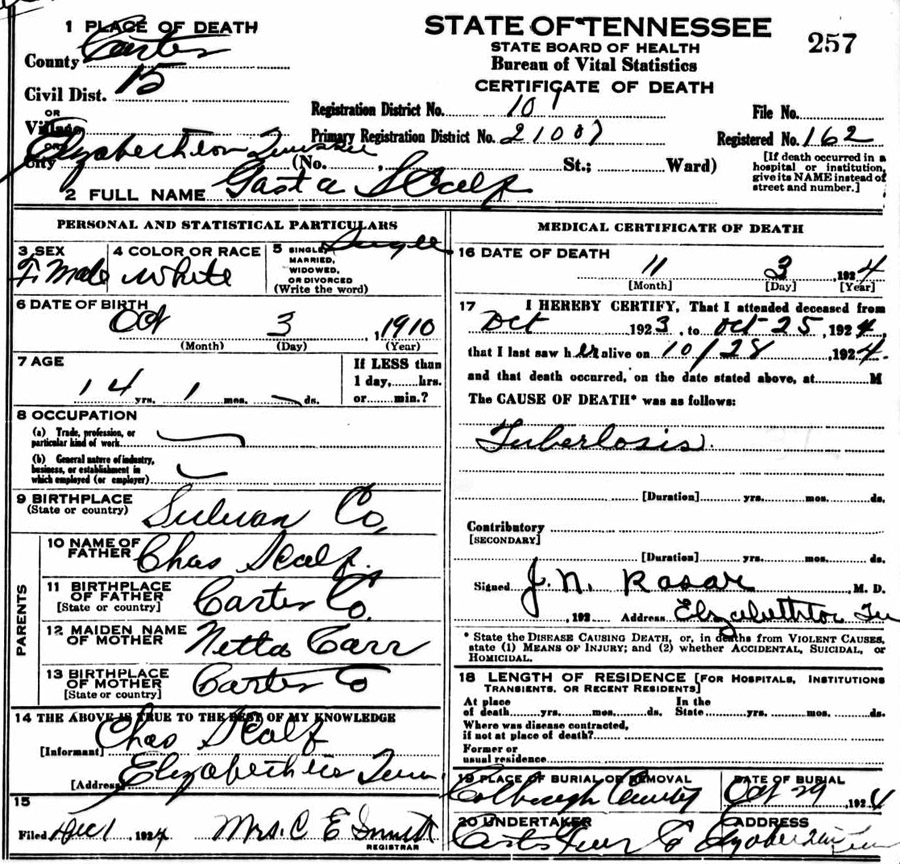 STATE OF TENNESSEE
STATE BOARD OF HEALTH
Bureau of Vital Statistics
CERTIFICATE OF DEATH
257
1 PLACE OF DEATH
County Carter
Civil Dist. 15
OR
Village
OR
City Elzabethton
Registration District No. 101
File No.
Primary Registration District No. 21007
Registered No. 162
(No. , St.; Ward)
[If death occurred in a hospital or institution, give its NAME instead of street and number.]
2 FULL NAME Scalf
PERSONAL AND STATISTICAL PARTICULARS
3 SEX
Female
4 COLOR OR RACE
White
5 SINGLE, MARRIED, WIDOWED, OR DIVORCED (Write the word)
Single
6 DATE OF BIRTH
Oct 3, 1910
(Month) (Day) (Year)
7 AGE
14 yrs. 1 mos. ds.
If LESS than 1 day, hrs. or min.?
8 OCCUPATION
(a) Trade, profession, or particular kind of work
(b) General nature of industry, business, or establishment in which employed (or employer)
9 BIRTHPLACE
(State or country)
Sulivan Co,
PARENTS
10 NAME OF FATHER
Chas Scalf
11 BIRTHPLACE OF FATHER
[State or country]
Carter Co
12 MAIDEN NAME OF MOTHER
Netta Carr
13 BIRTHPLACE OF MOTHER
[State or country]
Carter Co
14 THE ABOVE IS TRUE TO THE BEST OF MY KNOWLEDGE
[Informant] Chas Scalf
[Address] Tenn
15
Filed Dec 1 1924 Mrs. C E
REGISTRAR
MEDICAL CERTIFICATE OF DEATH
16 DATE OF DEATH
11 3, 1924
[Month] [Day] [Year]
17 I HEREBY CERTIFY, That I attended deceased from
Oct 1923, to Oct-25, 1924,
that I last saw her alive on 10/28, 1924.
and that death occurred, on the date stated above, at M
The CAUSE OF DEATH* was as follows:
Tuberlosis.
[Duration] yrs. mos. ds.
Contributory
[SECONDARY]
[Duration] yrs. mos. ds.
Signed J. N. Rasar M. D.
, 192 Address
* State the DISEASE CAUSING DEATH, or, in deaths from VIOLENT CAUSES,
state (1) MEANS OF INJURY; and (2) whether ACCIDENTAL, SUICIDAL, or
HOMICIDAL.
18 LENGTH OF RESIDENCE [FOR HOSPITALS, INSTITUTIONS
TRANSIENTS. OR RECENT RESIDENTS]
At place of death yrs. mos. ds. In the State yrs. mos. ds.
Where was disease contracted,
if not at place of death?
Former or
usual residence
19 PLACE OF BURIAL OR REMOVAL
DATE OF BURIAL
Oct 29 1924
20 UNDERTAKER
ADDRESS